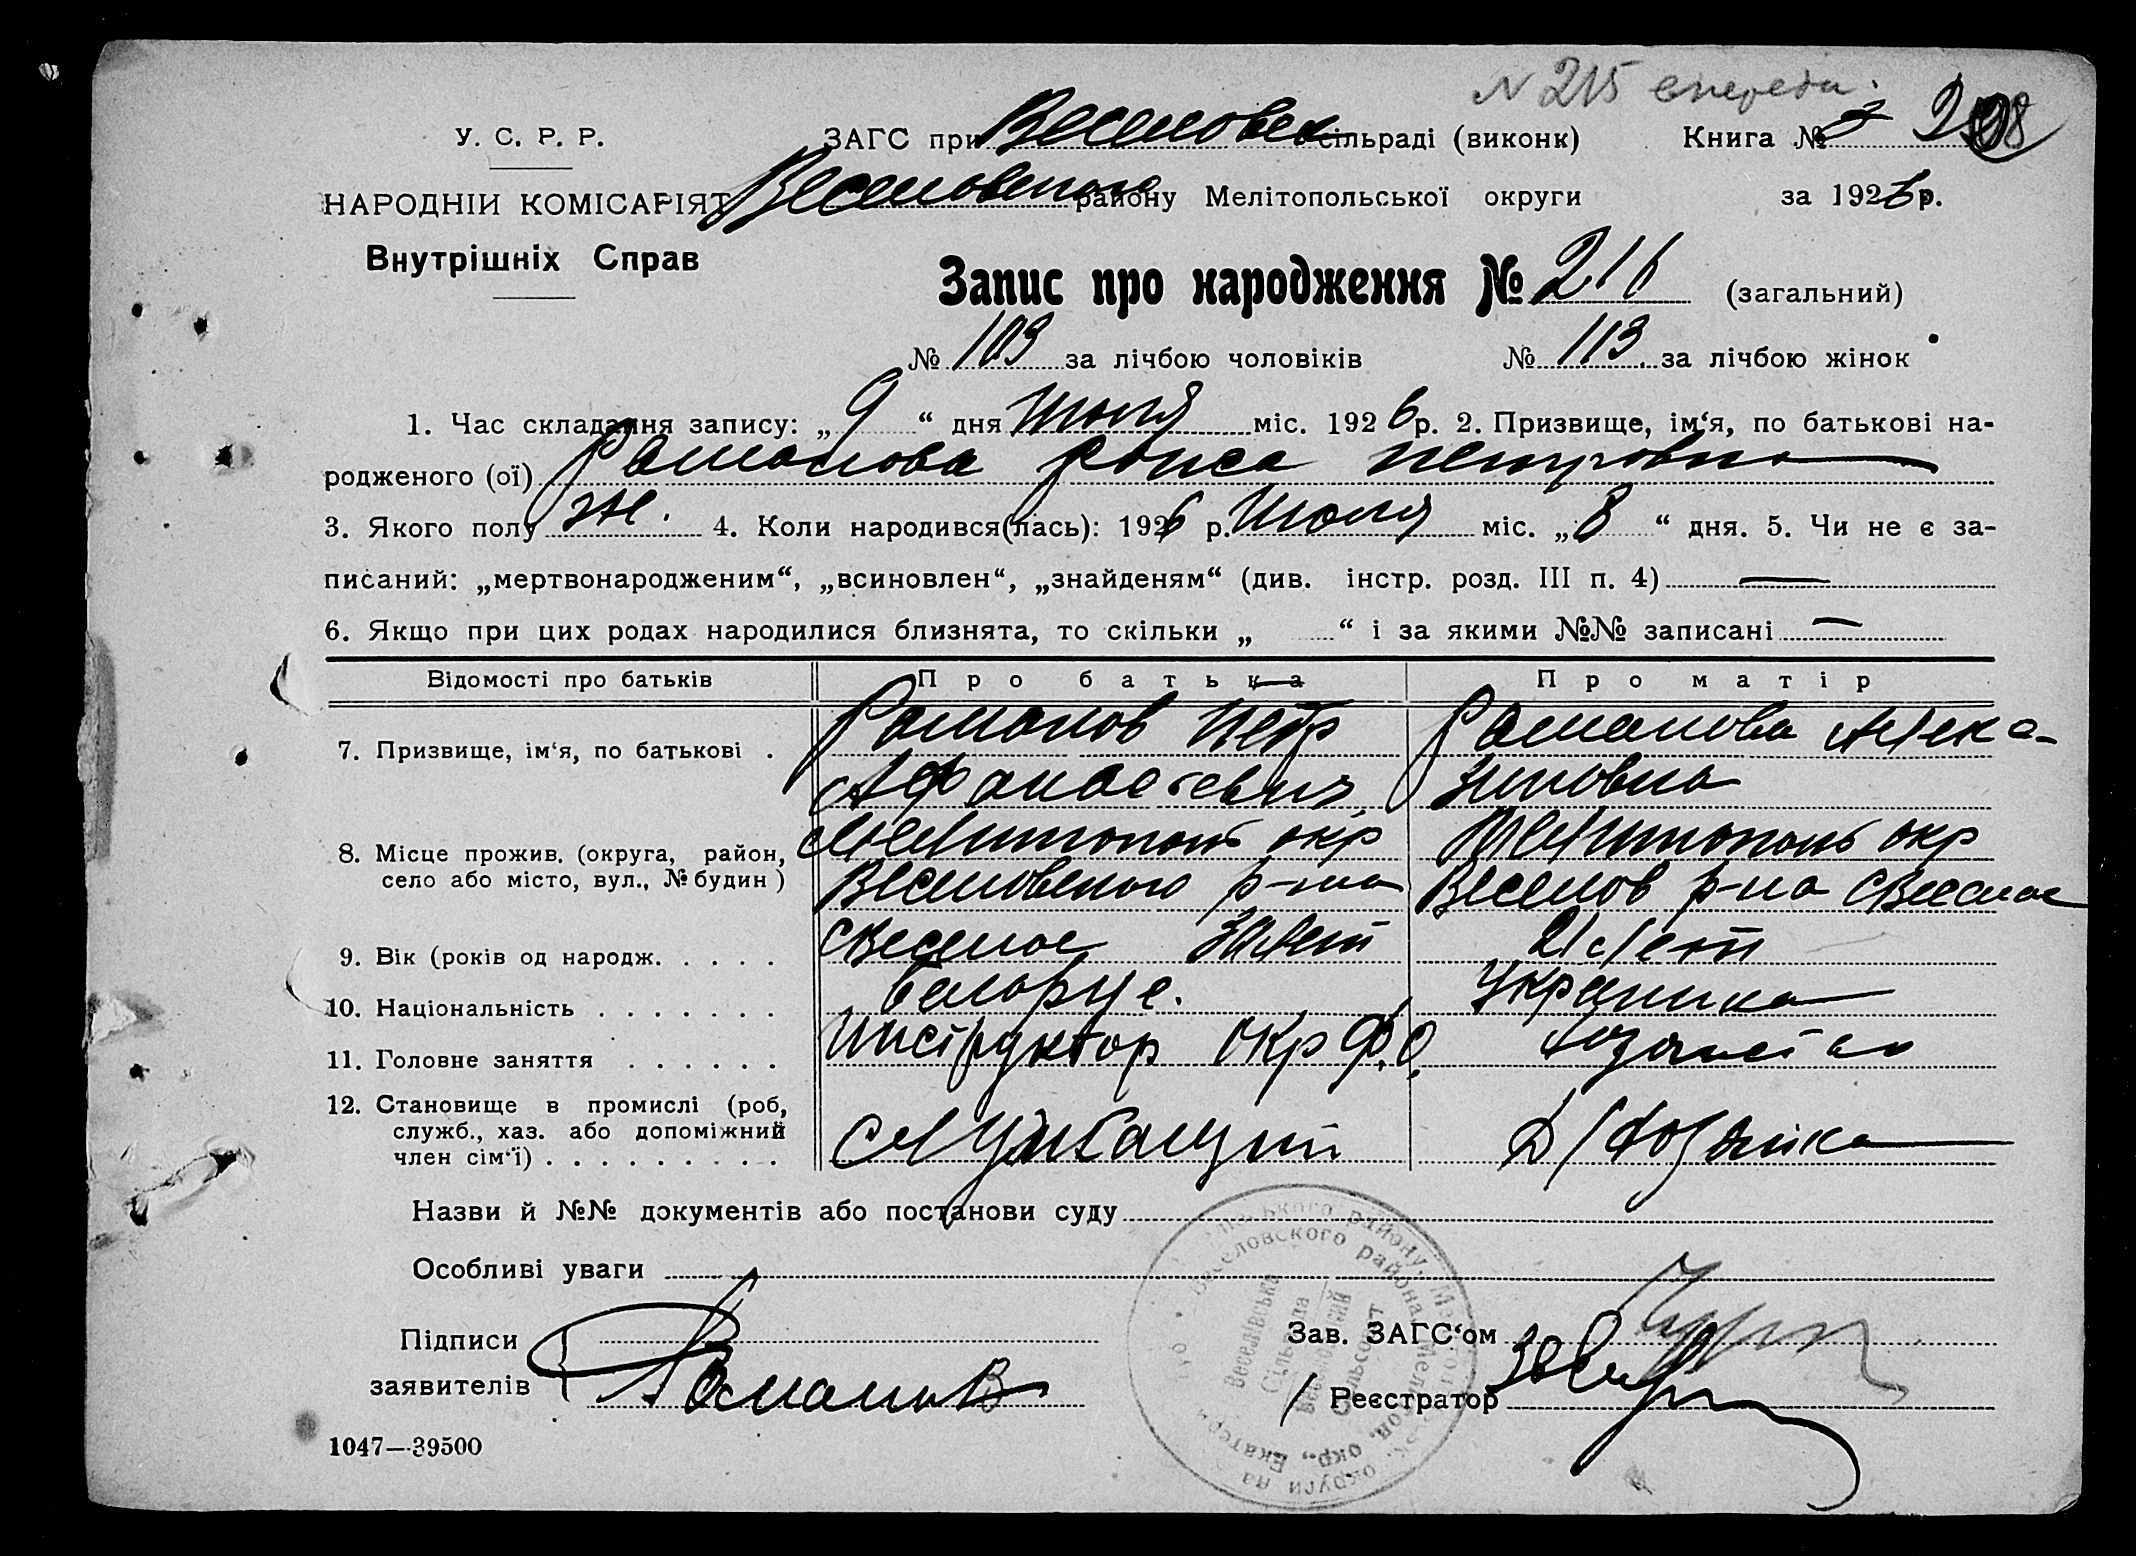 N 215 спереди.
У. С. Р. Р.
ЗАГС при Веселовск сільраді (виконк) Книга №
НАРОДНІЙ КОМІСАРІЯТ Веселовского району Мелітопольської округи за 1926 р.
Внутрішніх Справ
Запис про народження № 216 (загальний)
№ 103 за лічбою чоловіків № 113 за лічбою жінок
1. Час складання запису: „ 9 “ дня Июля міс. 1926 р. 2. Призвище, ім‘я, по батькові на-
родженого (ої) Романова Раиса Петровна
3. Якого полу Ж. 4. Коли народився(лась): 1926 р. Июля міс. „ 8 “ дня. 5. Чи не є за-
писаний: „мертвонародженим“, „всиновлен“, „знайденям“ (див. інстр. розд. III п. 4) —
6. Якщо при цих родах народилися близнята, то скільки „ “ і за якими №№ записані —
Відомості про батьків Про батька Про матір
7. Призвище, ім‘я, по батькові . Романов Петр Романова Алека-
Афанасьевич
8. Місце прожив. (округа, район, Мелитополь окр Мелитополь окр
село або місто, вул., № будин ) Веселовского р-на Веселов р-на с Веселое
9. Вік (років од народж. . . . . с Веселое 30 лет 21 лет
10. Національність . . . . . . . белорус. Украинка
11. Головне заняття . . . . . . Инструктор Окр Ф.О.
12. Становище в промислі (роб,
служб., хаз. або допоміжний
член сім‘ї) . . . . . . . . . Служащий Д/хозяйка
Назви й №№ документів або постанови суду
Особливі уваги
Підписи Зав. ЗАГС‘ом
заявителів Романов Реєстратор
1047—39500
Веселівська Сільрада
Веселовский Сельсовет